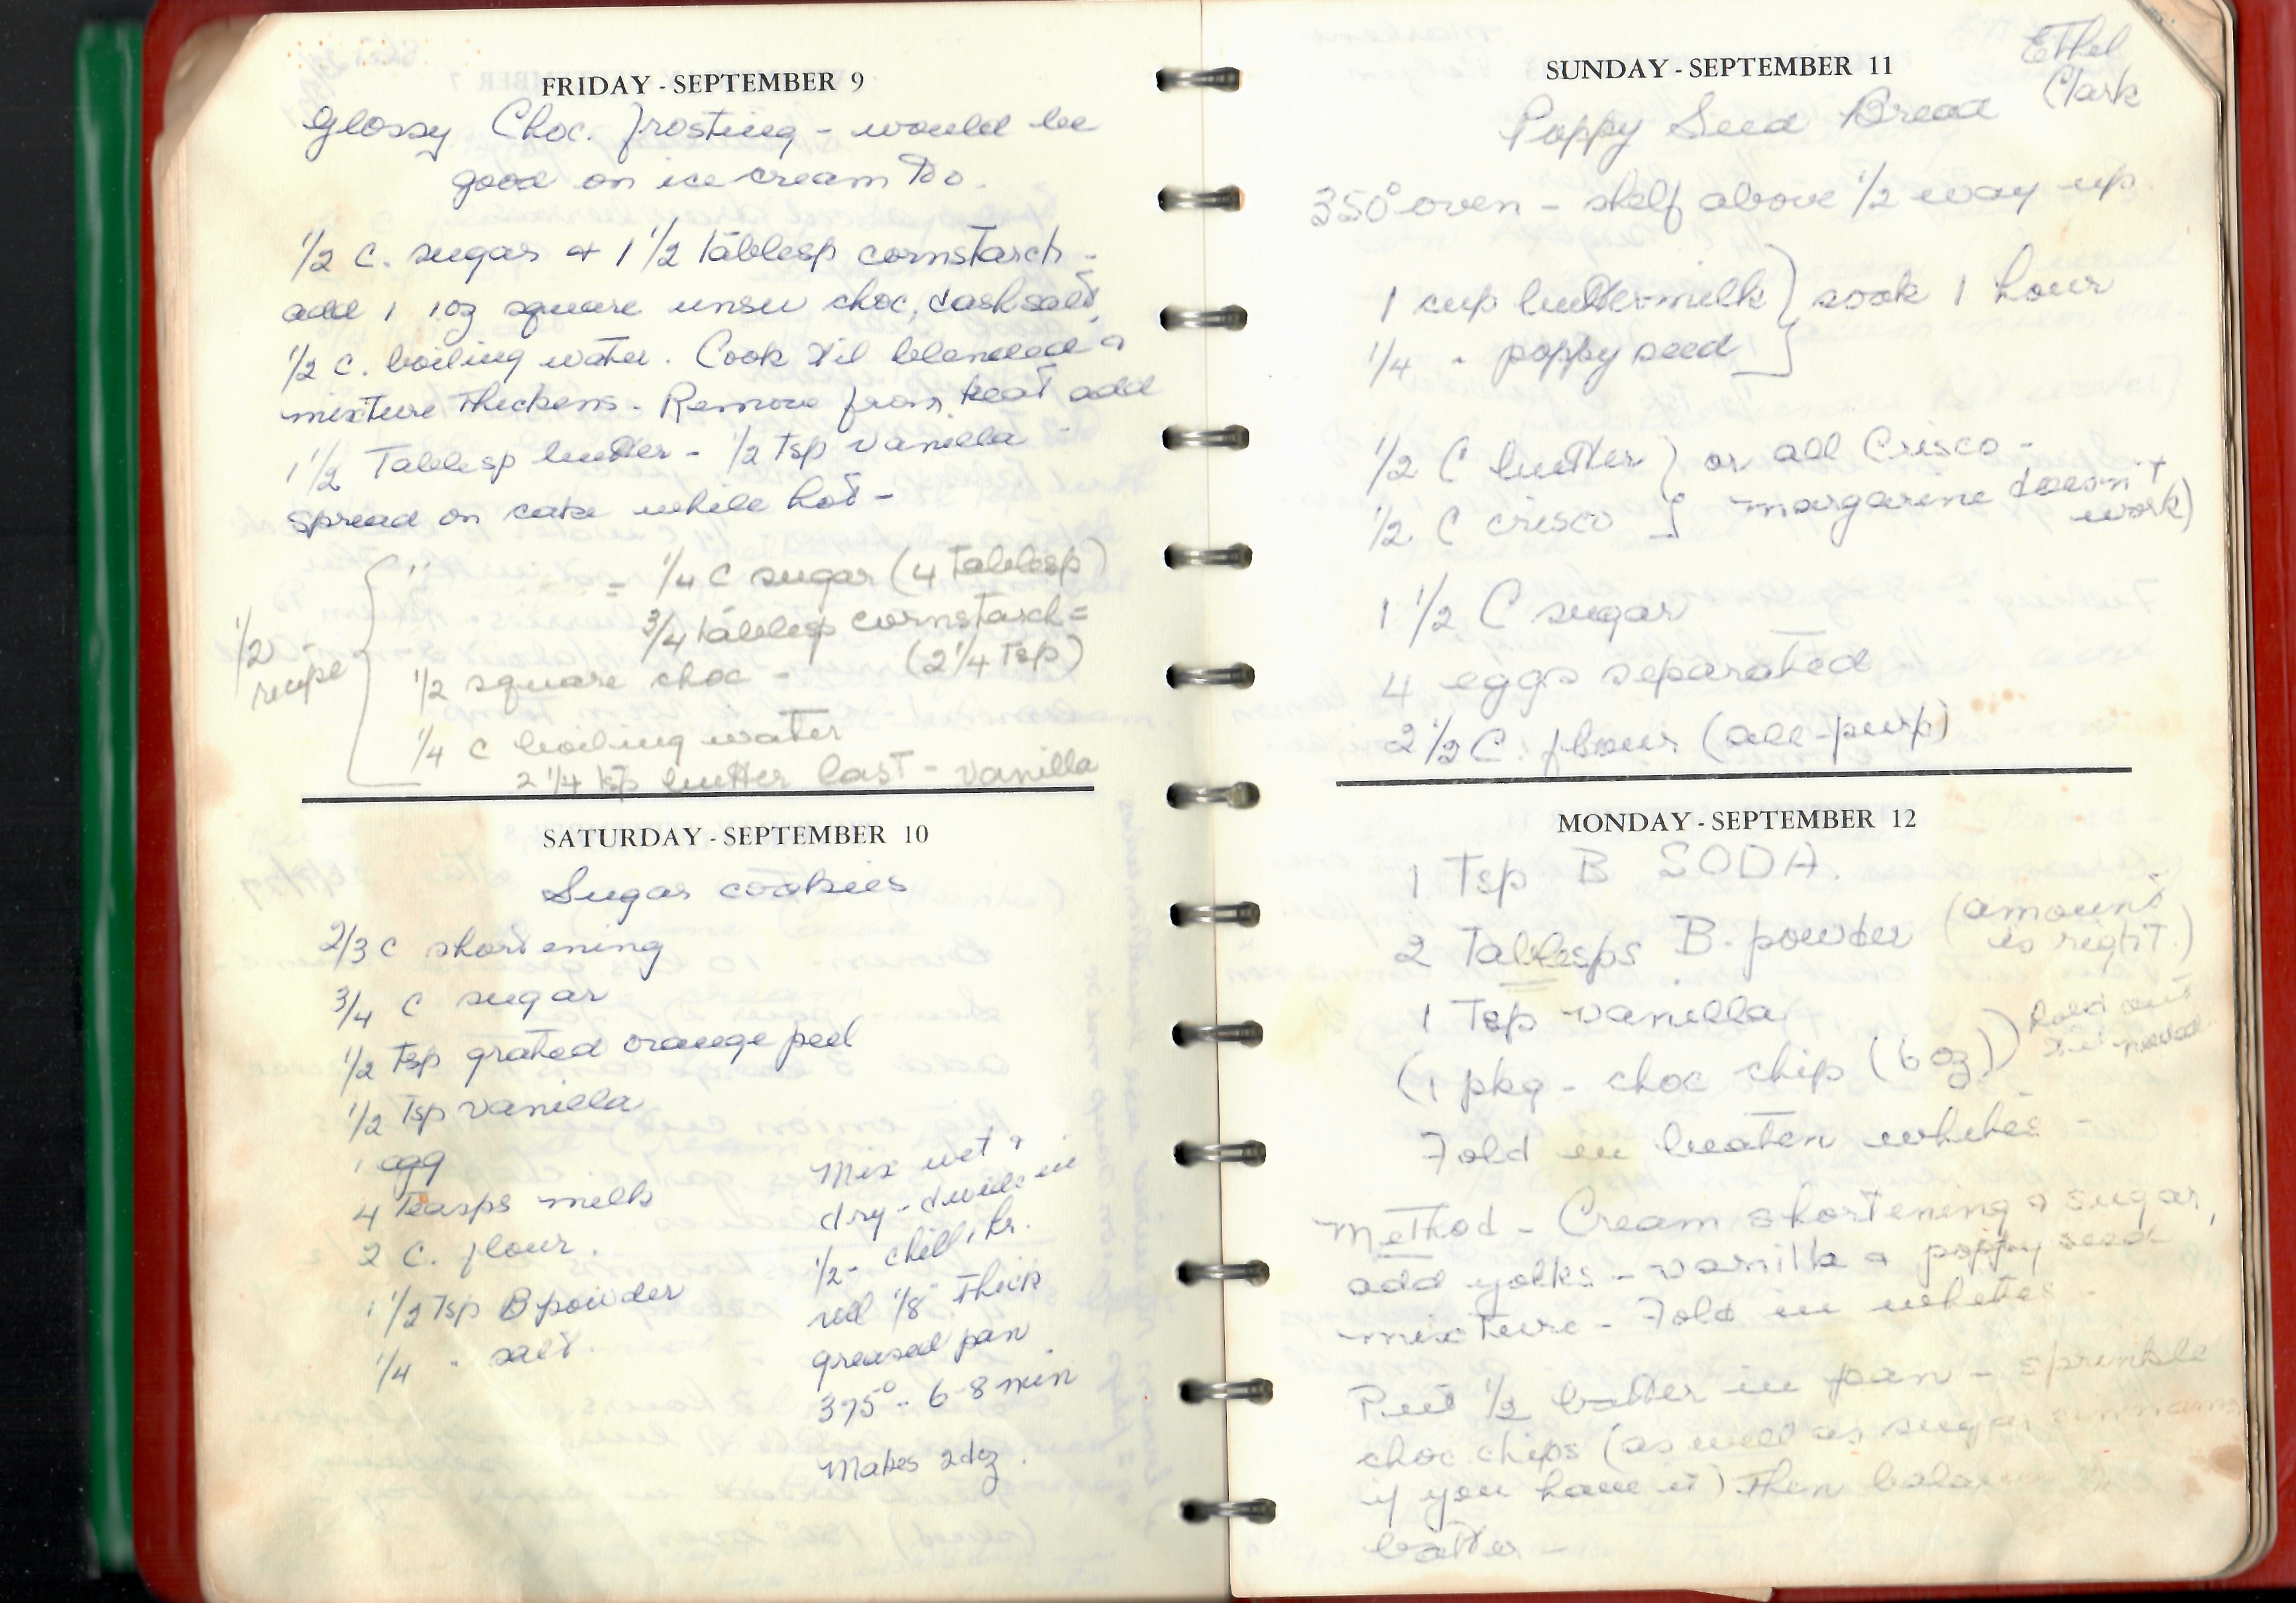 FRIDAY - SEPTEMBER 9
Glossy Choc. frosting - would be
good on ice cream too.
1/2 C. sugar & 1 1/2 tablesp cornstarch -
add 1 1 oz square unsw choc, dash salt,
1/2 C. boiling water. Cook til blended &
mixture thickens. Remove from heat add
1 1/2 Tablesp butter - 1/2 tsp vanilla -
spread on cake while hot -
1/2 recipe
" = 1/4 C sugar (4 Tablesp)
3/4 tablesp cornstarch =
(2 1/4 tsp)
1/2 square choc -
1/4 C boiling water
2 1/4 tsp butter last - vanilla
SATURDAY - SEPTEMBER 10
Sugar cookies
2/3 C shortening
3/4 C sugar
1/2 tsp grated orange peel
1/2 tsp vanilla
1 egg
4 teasps milk
2 C. flour.
1 1/2 tsp B powder
1/4 " salt.
Mix wet &
dry - divide in
1/2 - chill 1 hr.
roll 1/8" thick
greased pan
375° - 6-8 min
Makes 2 doz.
SUNDAY - SEPTEMBER 11
Ethel
Clark
Poppy Seed Bread
350° oven - shelf above 1/2 way up.
1 cup buttermilk } soak 1 hour
1/4 " poppy seed }
1/2 C butter } or all Crisco -
1/2 C crisco } margarine doesn't
work)
1 1/2 C sugar
4 eggs separated
2 1/2 C. flour (all-purp)
MONDAY - SEPTEMBER 12
1 Tsp B SODA.
2 Tablesps B. powder (amount
is right.)
1 Tsp vanilla
(1 pkg - choc chip (6 oz)) Hold out
til needed
Fold in beaten whites -
Method - Cream shortening & sugar,
add yolks - vanilla & poppy seed
mixture - Fold in whites -
Put 1/2 batter in pan - sprinkle
choc chips (as well as sugar cinnamon
if you have it) then balance
batter -